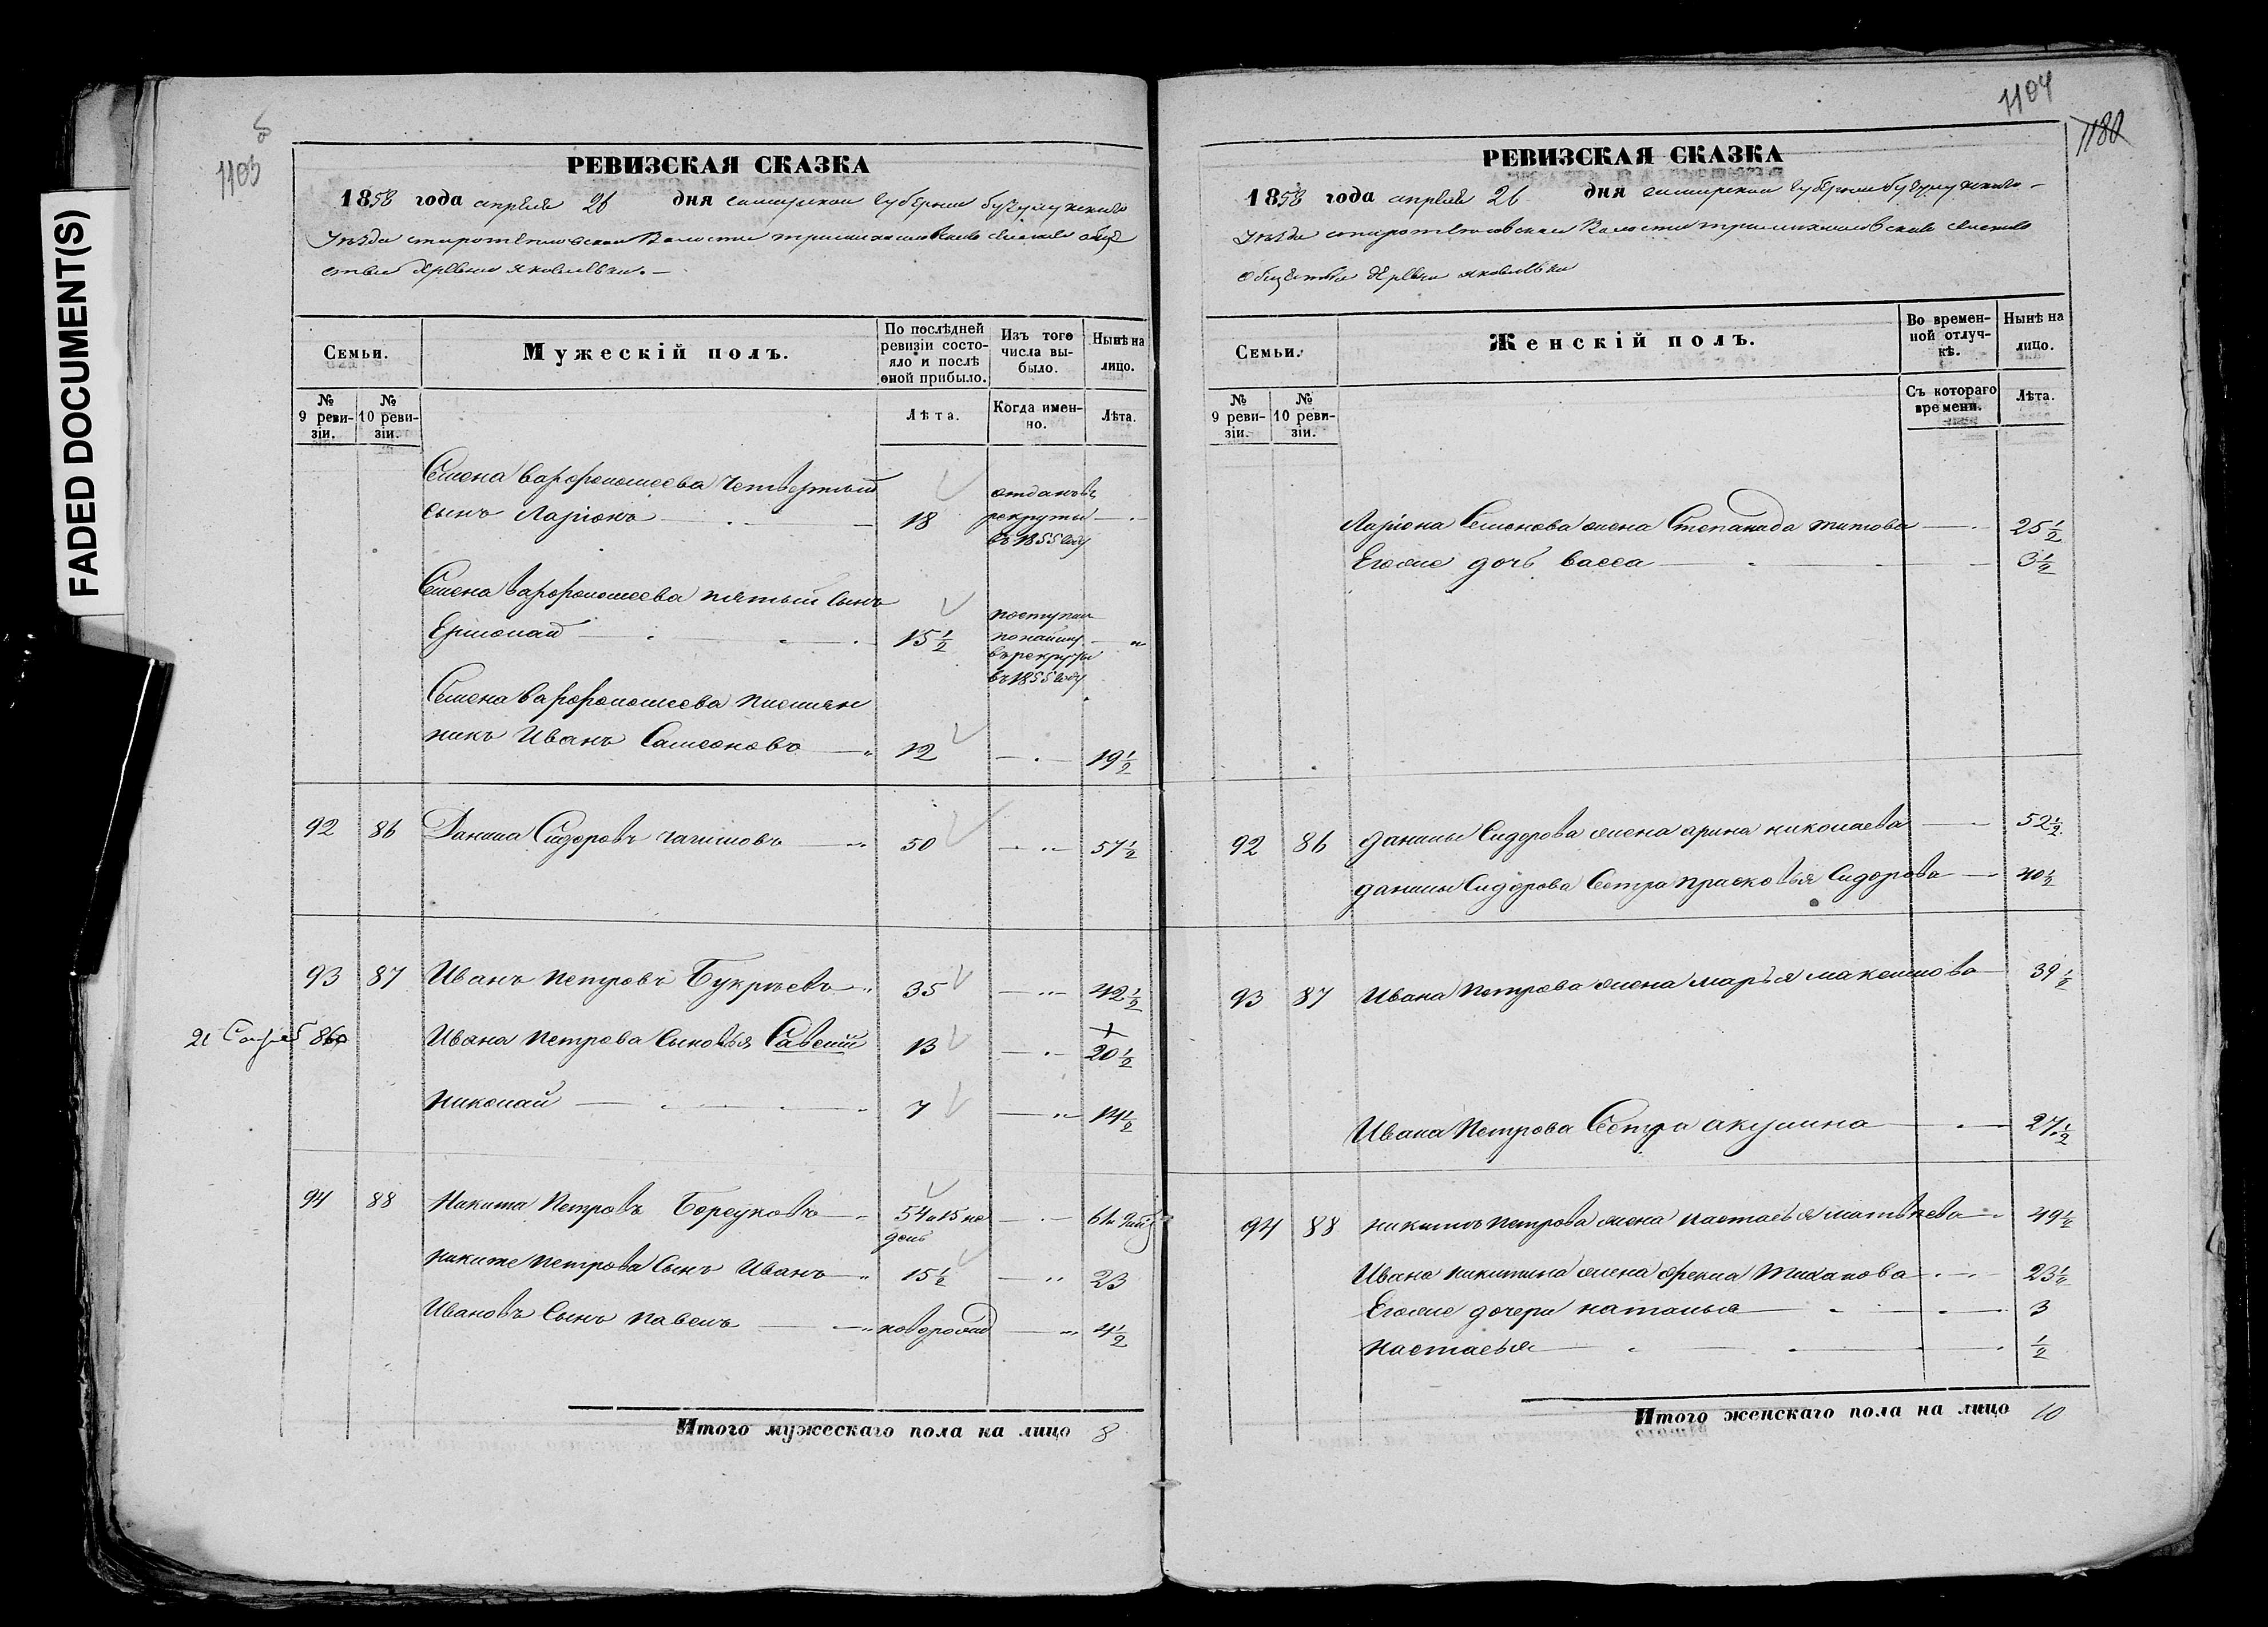 FADED DOCUMENT(S)
1103
РЕВИЗСКАЯ СКАЗКА
1858 года апреля 26 дня самарской губернии бузулукскаго
Уѣзда старотепловской Волости трисимахиловскаго сельскаго обще
ства деревни яковлевки.
Семьи.
Мужескій полъ.
По послѣдней ревизіи состояло и послѣ оной прибыло.
Изъ того числа выбыло.
Нынѣ на лицо.
№ 9 ревизіи.
№ 10 ревизіи.
Лѣта.
Когда именно.
Лѣта.
Семена Варфоломеева четвертый
сынъ Ларіонъ 18 отданъ въ рекруты въ 1855 году
Семена Варфоломеева пятый сынъ
Ермолай 15 1/2 поступил по найму в рекруты въ 1855 году
Семена Варфоломеева племян
никъ Иванъ Самсоновъ 12 19 1/2
92 86 Данила Сидоровъ 50 57 1/2
93 87 Иванъ Петровъ Букреевъ 35 42 1/2
Ивана Петрова Сыновья Савелий 13 20 1/2
Николай 7 14 1/2
94 88 Никита Петровъ Борсуковъ 54
Никите Петрова Сынъ Иванъ 15 1/2 23
Ивановъ Сынъ Павелъ новорожд 4 1/2
Итого мужескаго пола на лицо 8
1104
1180
РЕВИЗСКАЯ СКАЗКА
1858 года апреля 26 дня самарской губернии бузулукскаго
Уѣзда старотепловской Волости сельскаго
общества деревни яковлевки
Семьи.
Женскій полъ.
Во временной отлучкѣ.
Нынѣ на лицо.
№ 9 ревизіи.
№ 10 ревизіи.
Съ котораго времени.
Лѣта.
Ларіона Семенова жена Степанида титова 25 1/2
Егоже дочь васса 3 1/2
92 86 Данилы Сидорова жена арина николаева 52 1/2
данилы Сидорова Сестра прасковья Сидорова 40 1/2
93 87 Ивана Петрова жена марья максимова 39 1/2
Ивана Петрова Сестра акулина 27 1/2
94 88 никиты петрова жена настасья матвеева 49 1/2
Ивана никитина жена фекла 23 1/2
Егоже дочери наталья 3
настасья 1/2
Итого женскаго пола на лицо 10